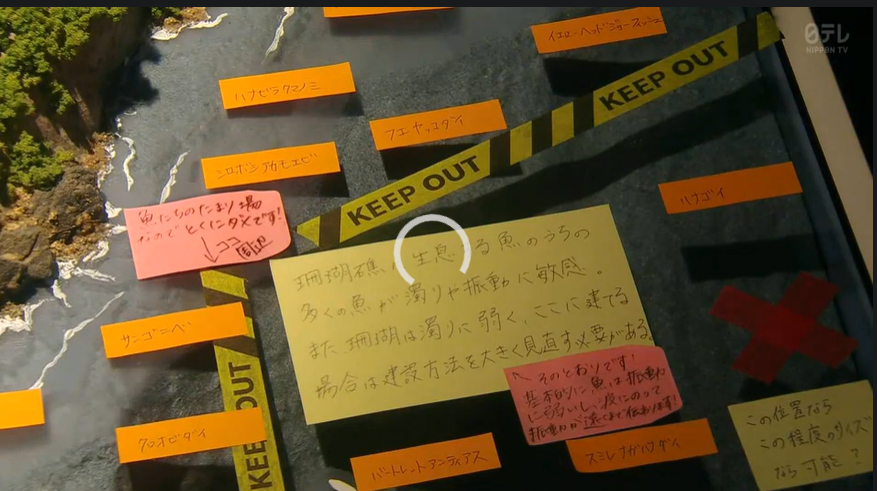 日テレ
NIPPON TV
イエローヘッドジョーフィッシュ
ハナビラクマノミ
KEEP OUT
フエヤッコダイ
シロボシアカモエビ
KEEP OUT
ハナゴイ
魚たちのたまり場
なので とくにダメです!
↓ココ
周辺
珊瑚礁 生息する魚のうちの
多くの魚が濁りや振動に敏感。
また、珊瑚は濁りに弱く、ここに建てる
場合は建設方法を大きく見直す必要がある。
サンゴニベ
そのとおりです!
基本的に魚は振動
に弱いし、波にのって
振動が遠くまで伝わります!
KEEP OUT
クロオビダイ
バートレットアンティアス
スミレナガハナダイ
この位置なら
この程度のサイズ
なら可能?